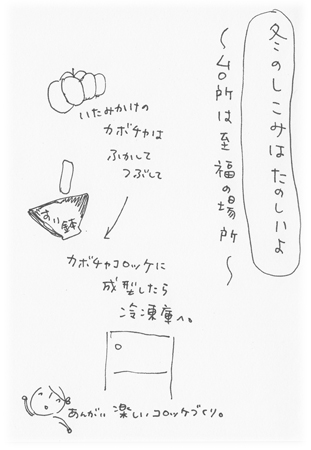 冬のしこみはたのしいよ
～台所は至福の場所～
いたみかけの
カボチャは
ふかして
つぶして
すり鉢
カボチャコロッケに
成型したら
冷凍庫へ。
あんがい楽しいコロッケづくり。